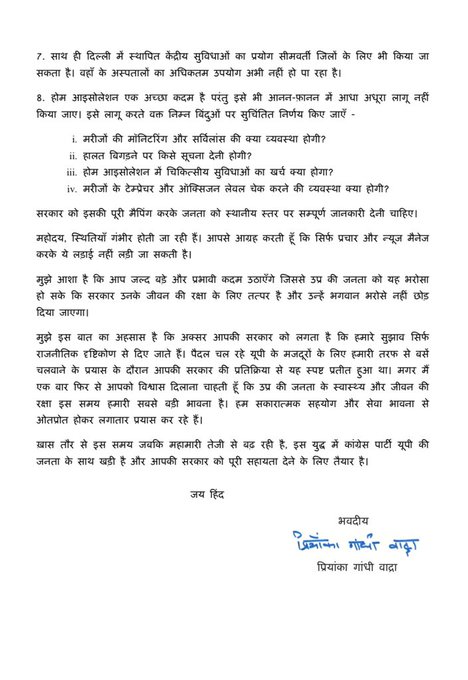 7. साथ ही दिल्ली में स्थापित केंद्रीय सुविधाओं का प्रयोग सीमवर्ती जिलों के लिए भी किया जा
सकता है। वहाँ के अस्पतालों का अधिकतम उपयोग अभी नहीं हो पा रहा है।
8. होम आइसोलेशन एक अच्छा कदम है परंतु इसे भी आनन-फ़ानन में आधा अधूरा लागू नहीं
किया जाए। इसे लागू करते वक्त निम्न बिंदुओं पर सुचिंतित निर्णय किए जाएँ -
i. मरीजों की मॉनिटरिंग और सर्विलांस की क्या व्यवस्था होगी?
ii. हालत बिगड़ने पर किसे सूचना देनी होगी?
iii. होम आइसोलेशन में चिकित्सीय सुविधाओं का खर्च क्या होगा?
iv. मरीजों के टेम्प्रेचर और ऑक्सिजन लेवल चेक करने की व्यवस्था क्या होगी?
सरकार को इसकी पूरी मैपिंग करके जनता को स्थानीय स्तर पर सम्पूर्ण जानकारी देनी चाहिए।
महोदय, स्थितियाँ गंभीर होती जा रही हैं। आपसे आग्रह करती हूँ कि सिर्फ प्रचार और न्यूज मैनेज
करके ये लड़ाई नहीं लड़ी जा सकती है।
मुझे आशा है कि आप जल्द बड़े और प्रभावी कदम उठाएँगे जिससे उप्र की जनता को यह भरोसा
हो सके कि सरकार उनके जीवन की रक्षा के लिए तत्पर है और उन्हें भगवान भरोसे नहीं छोड़
दिया जाएगा।
मुझे इस बात का अहसास है कि अक्सर आपकी सरकार को लगता है कि हमारे सुझाव सिर्फ
राजनीतिक दृष्टिकोण से दिए जाते हैं। पैदल चल रहे यूपी के मजदूरों के लिए हमारी तरफ से बसें
चलवाने के प्रयास के दौरान आपकी सरकार की प्रतिक्रिया से यह स्पष्ट प्रतीत हुआ था। मगर मैं
एक बार फिर से आपको विश्वास दिलाना चाहती हूँ कि उप्र की जनता के स्वास्थ्य और जीवन की
रक्षा इस समय हमारी सबसे बड़ी भावना है। हम सकारात्मक सहयोग और सेवा भावना से
ओतप्रोत होकर लगातार प्रयास कर रहे हैं।
ख़ास तौर से इस समय जबकि महामारी तेजी से बढ़ रही है, इस युद्ध में कांग्रेस पार्टी यूपी की
जनता के साथ खड़ी है और आपकी सरकार को पूरी सहायता देने के लिए तैयार है।
जय हिंद
भवदीय
प्रियंका गांधी वाड्रा
प्रियांका गांधी वाद्रा